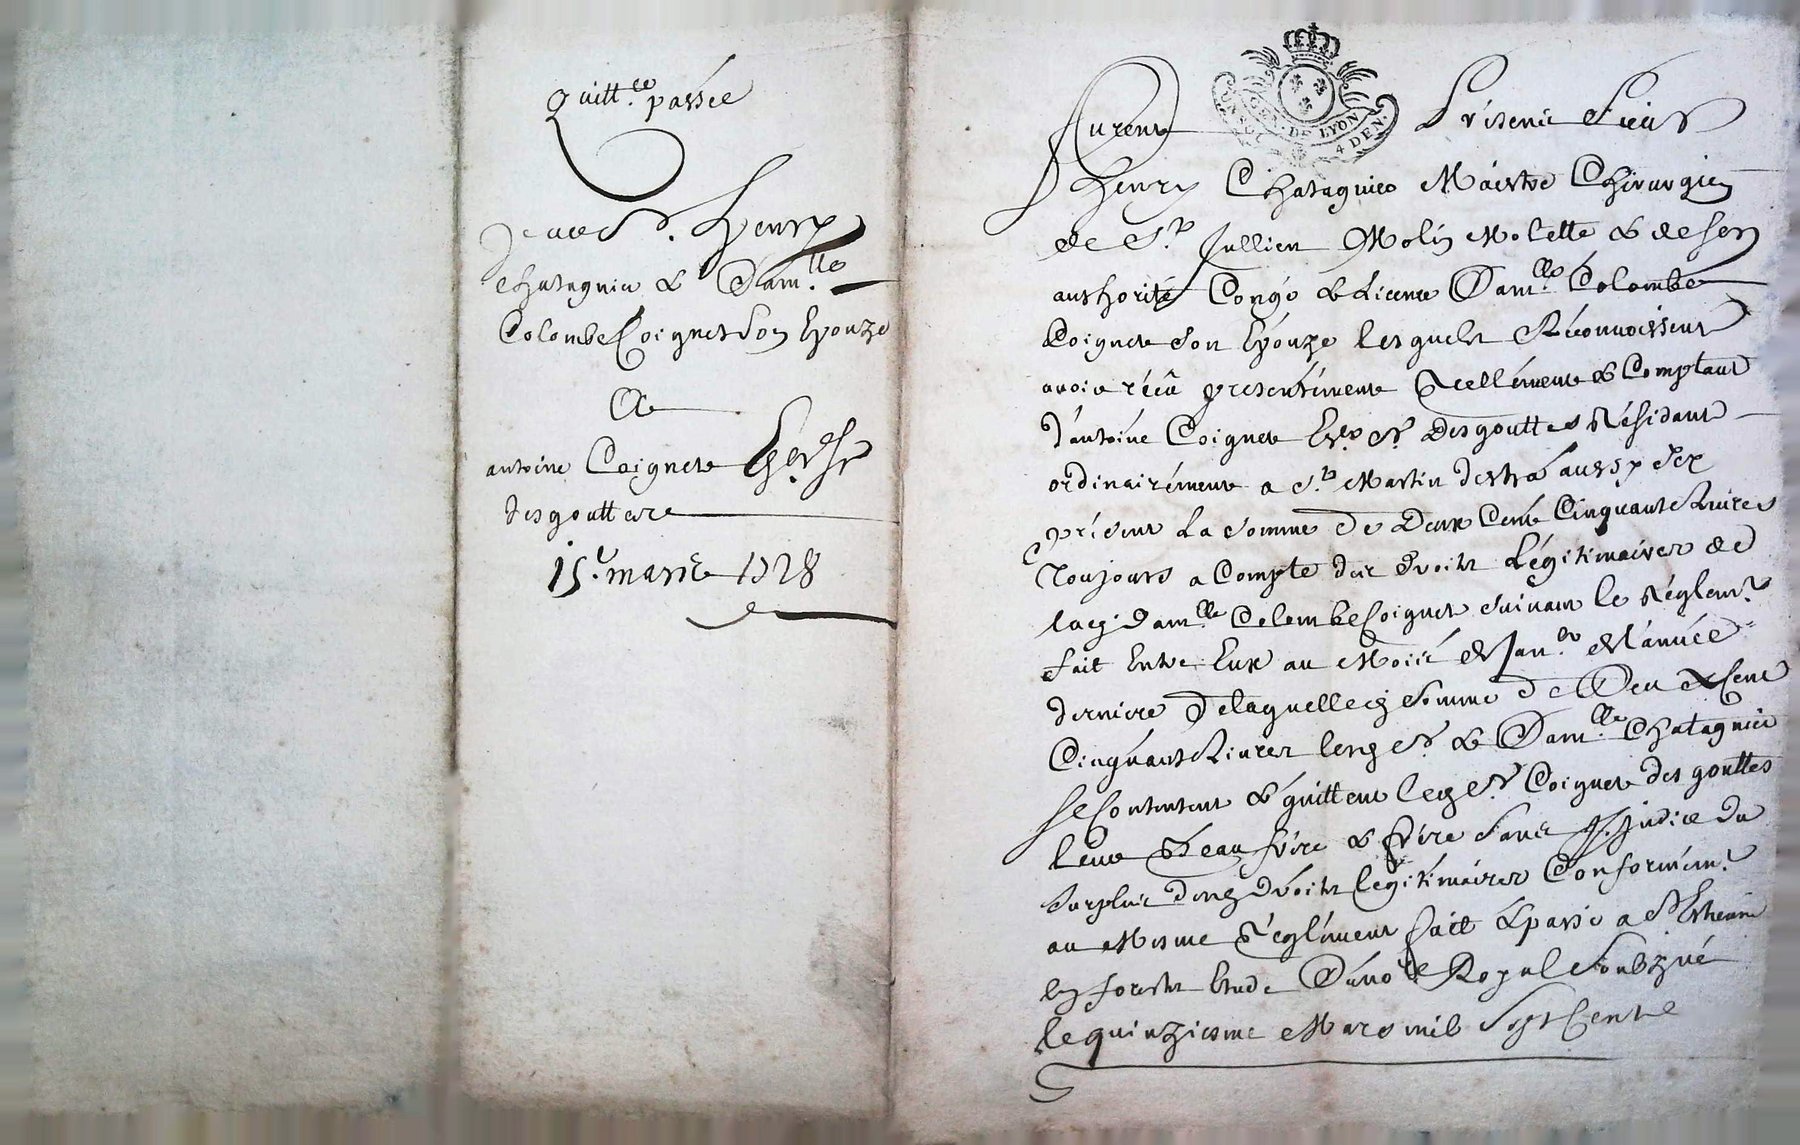 Quitt.ce passée
henry
Chatagnier & Dam.lle
Colombe Coignet Son Epouze
A
antoine Coignet
desgouttes
15.e mars 1728
GEN. DE LYON
4 DEN.
Furent Présens Sieur
henry Chatagnier Maistre Chirurgien
de St Jullien Molin Molette & de Son
authorité Congé & Licence Dam.lle Colombe
Coignet Son Epouze lesquels Réconnoissent
avoir réçû présentément Réellément & Comptant
d'antoine Coignet Sr Desgouttes Résidant
ordinairément a St Martin aussy
présent La Somme de Deux Cent Cinquante Livres
Toujours a Compte des Droits Légitimaires de
lad Dam.lle Colombe Coignet Suivant le Réglem.t
fait Entre Eux au Mois de Janer de Lannée
derniere De laquelle Somme de Deux Cent
Cinquante Livres Sr & Dam.lle Chatagnier
Se Contentent & quittent Sr Coignet des gouttes
leur Beau frére & frére Sans Préjudice du
Surplus Droits Legitimáires Conformém.t
au Mesme Réglément fait & passé a St Ethienne
en forests Etude Du no.re Royal Soubzné
le quinziesme Mars mil Sept Cent